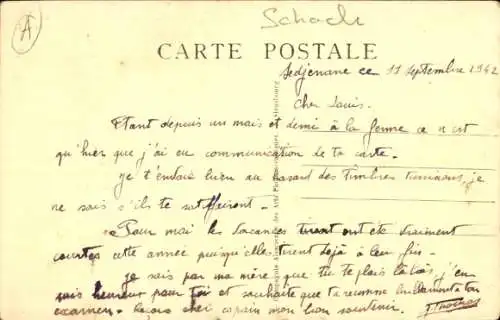 A
Schach
CARTE POSTALE
Sedjenane ce 11 septembre 1942
Cher Louis.
Etant depuis un mois et demi à la ferme ce n'est
qu'hier que j'ai eu communication de ta carte.
je t'envoie bien au hasard des timbres tunisiens, je
ne sais s'ils te satisferont.
Pour moi les vacances ont été vraiment
courtes cette année puisqu'elles tirent déjà à leur fin.
je sais par ma mère que tu te plais là-bas, j'en
suis heureux pour toi et souhaite que ta
examen. Reçois cher copain mon bon souvenir.